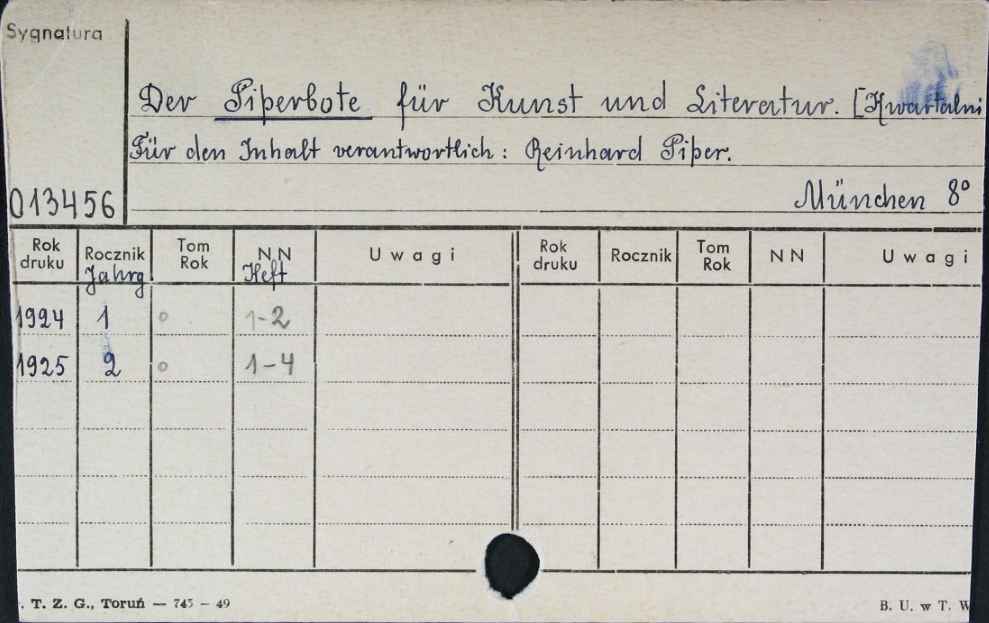 Sygnatura
Der Piperbote für Kunst und Literatur. [Kwartalni
Für den Inhalt verantwortlich: Reinhard Piper.
013456
München 8°
Rok druku Rocznik Tom Rok NN Uwagi Rok druku Rocznik Tom Rok NN Uwagi
Jahrg. Heft
1924 1 o 1-2
1925 2 o 1-4
. T. Z. G., Toruń — 745 — 49
B. U. w T. W